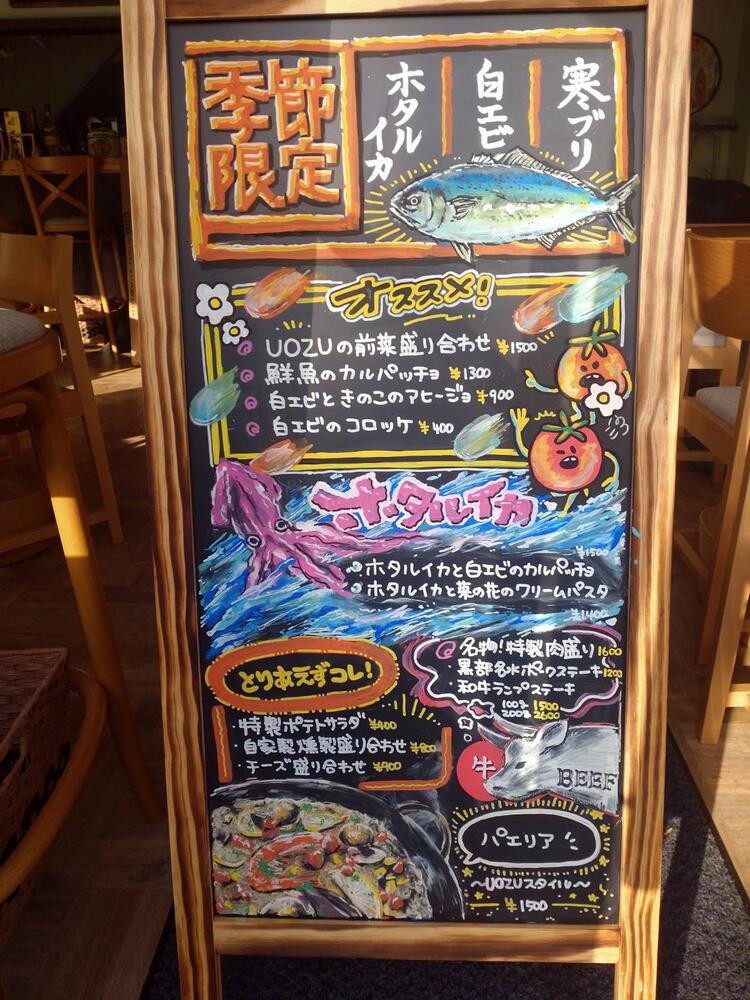 季節
限定
寒ブリ
白エビ
ホタルイカ
オススメ!
UOZUの前菜盛り合わせ ¥1500
鮮魚のカルパッチョ ¥1300
白エビときのこのアヒージョ ¥900
白エビのコロッケ ¥400
ホタルイカ
¥1500
ホタルイカと白エビのカルパッチョ
ホタルイカと菜の花のクリームパスタ
¥1400
名物!特製肉盛り 1600
黒部名水ポークステーキ 1200
和牛ランプステーキ
100g 1500
200g 2600
とりあえずコレ!
・特製ポテトサラダ ¥400
・自家製燻製盛り合わせ ¥800
・チーズ盛り合わせ ¥900
牛
BEEF
パエリア
〜UOZUスタイル〜
¥1500